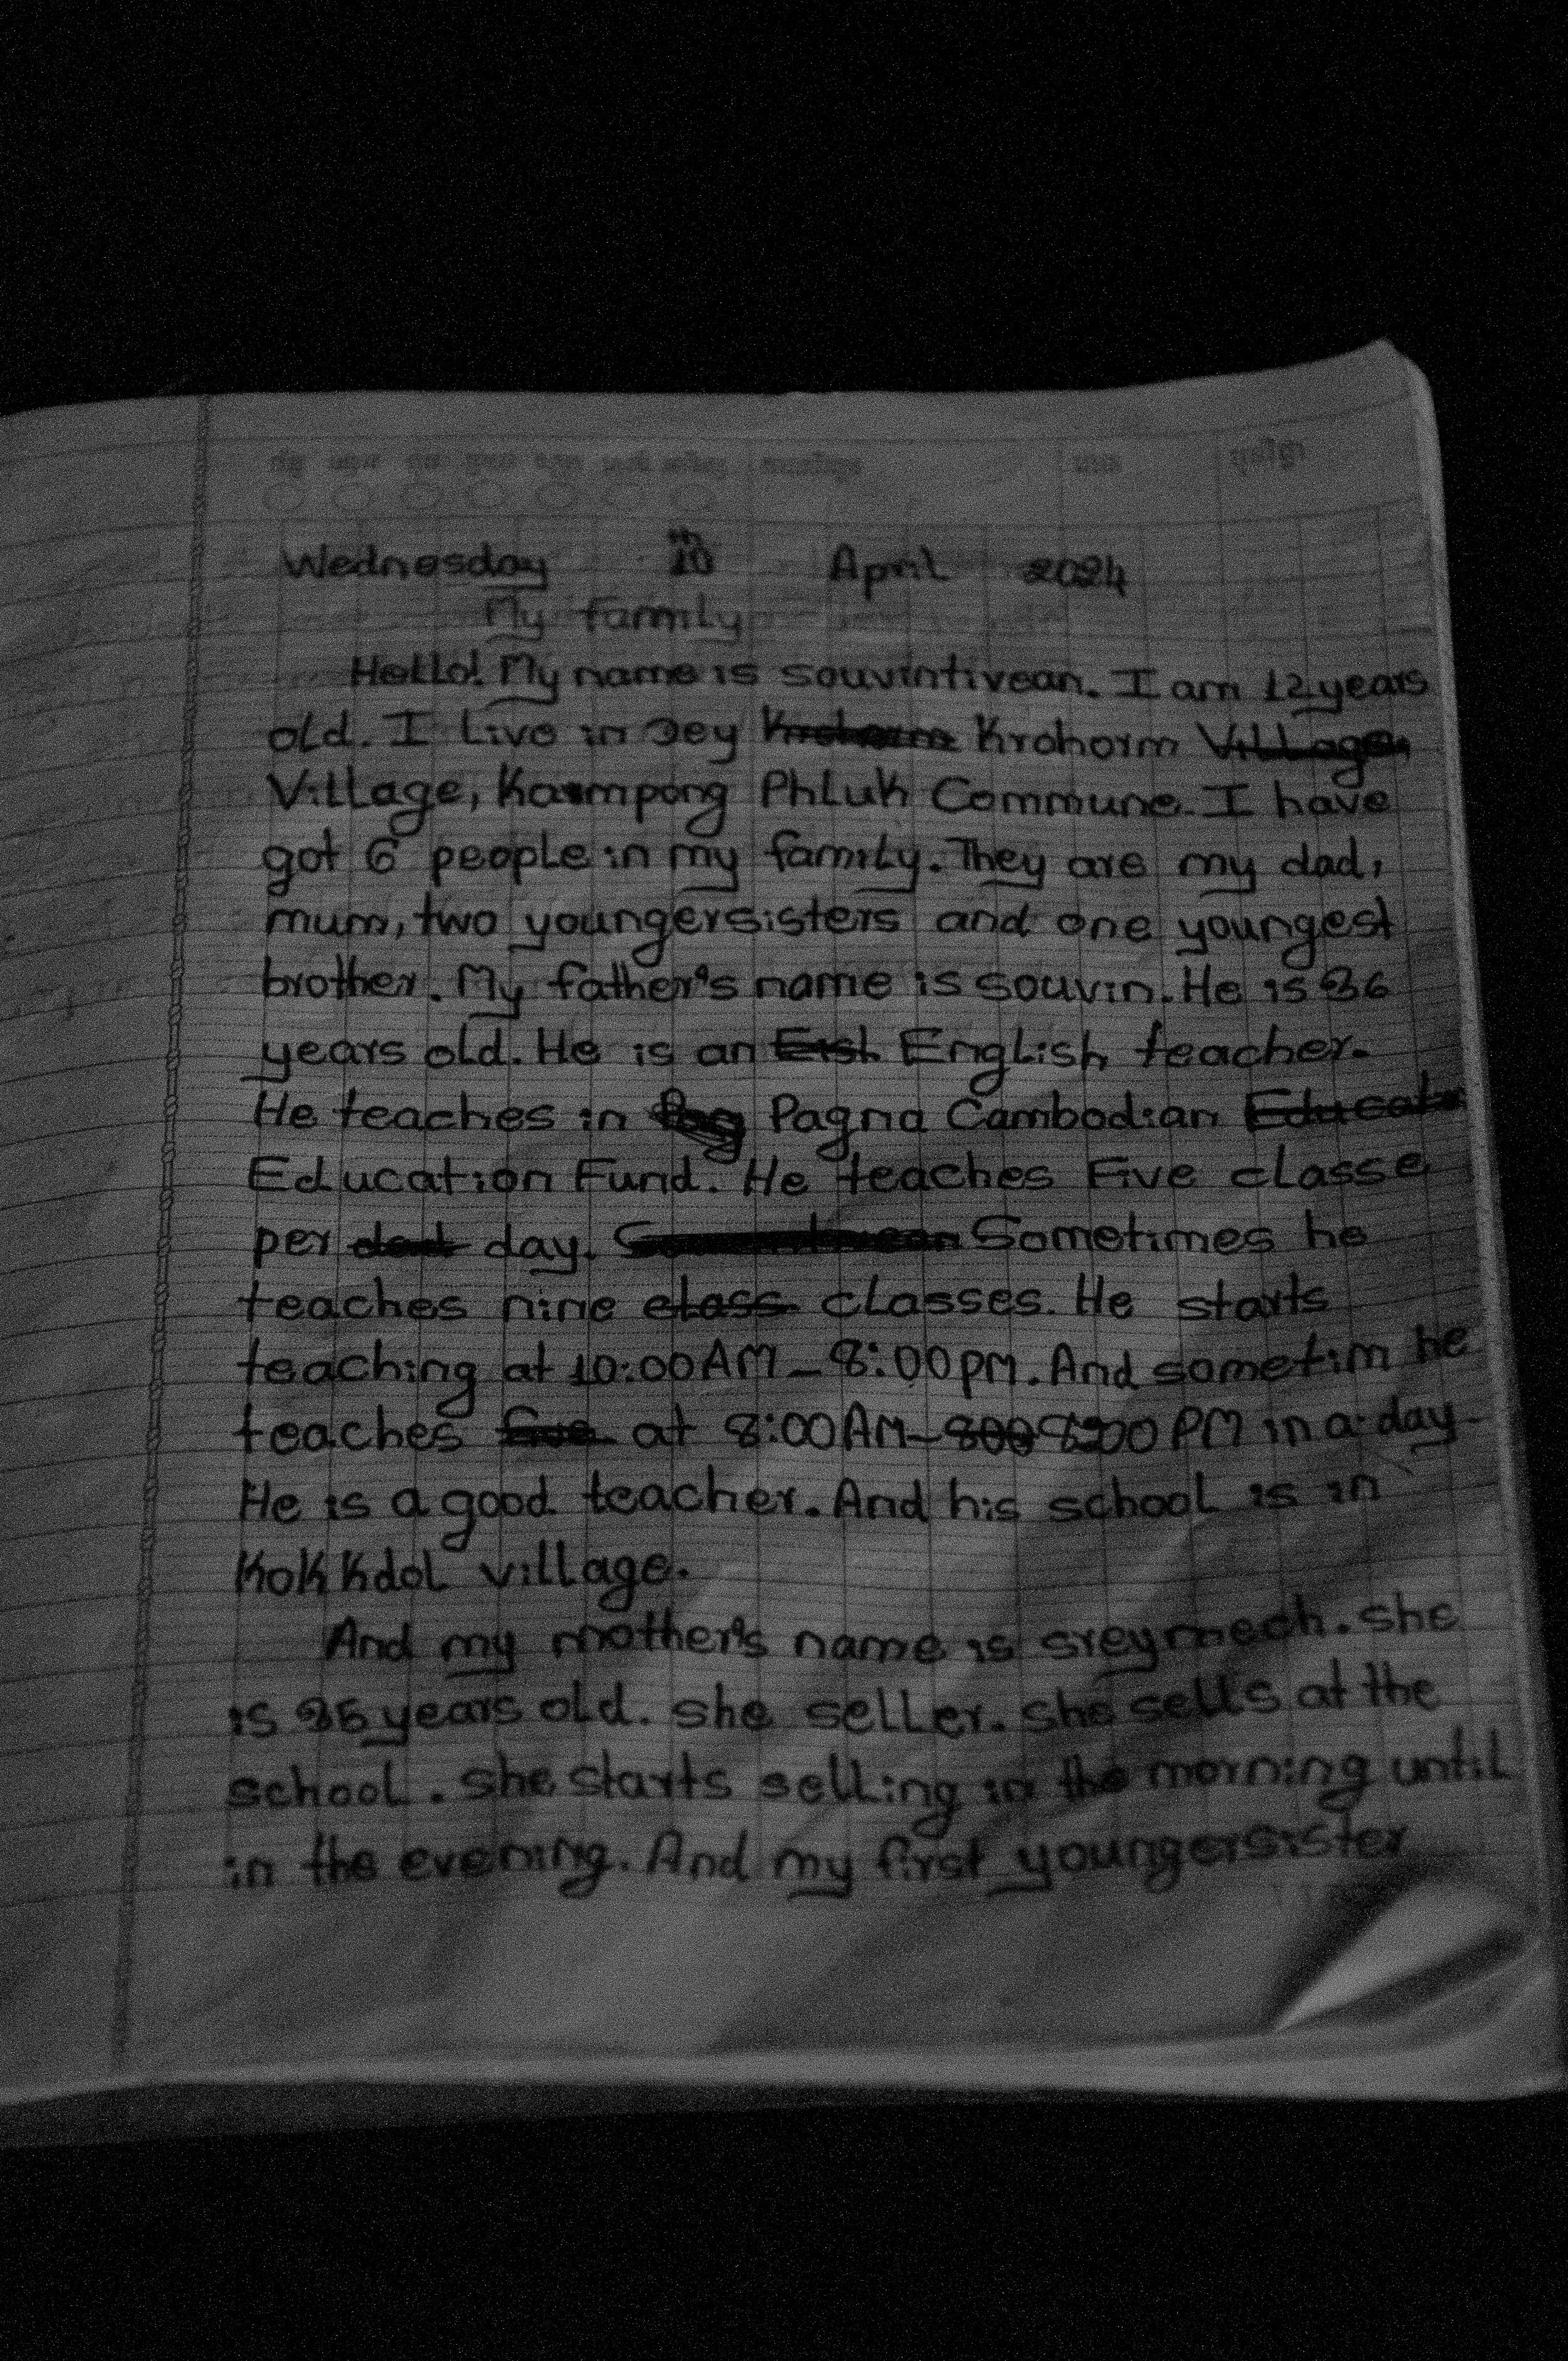 Wednesday 10th April 2024
My family
Hello! My name is souvintivean. I am 12 years
old. I live in Dey Krohorm Krohorm Village,
Village, Kampong Phluk Commune. I have
got 6 people in my family. They are my dad,
mum, two youngersisters and one youngest
brother. My father's name is souvin. He is 36
years old. He is an Eish English teacher.
He teaches in Pag Pagna Cambodian Educat
Education Fund. He teaches Five classe
per dad day. Sometimes he
teaches nine class classes. He starts
teaching at 10:00AM - 8:00pm. And sometim he
teaches five at 8:00AM - 800 8:00 PM in a day
He is a good teacher. And his school is in
Kok Kdol village.
And my mother's name is sreymech. she
is 35 years old. she seller. she sells at the
school. she starts selling in the morning until
in the evening. And my first youngersister